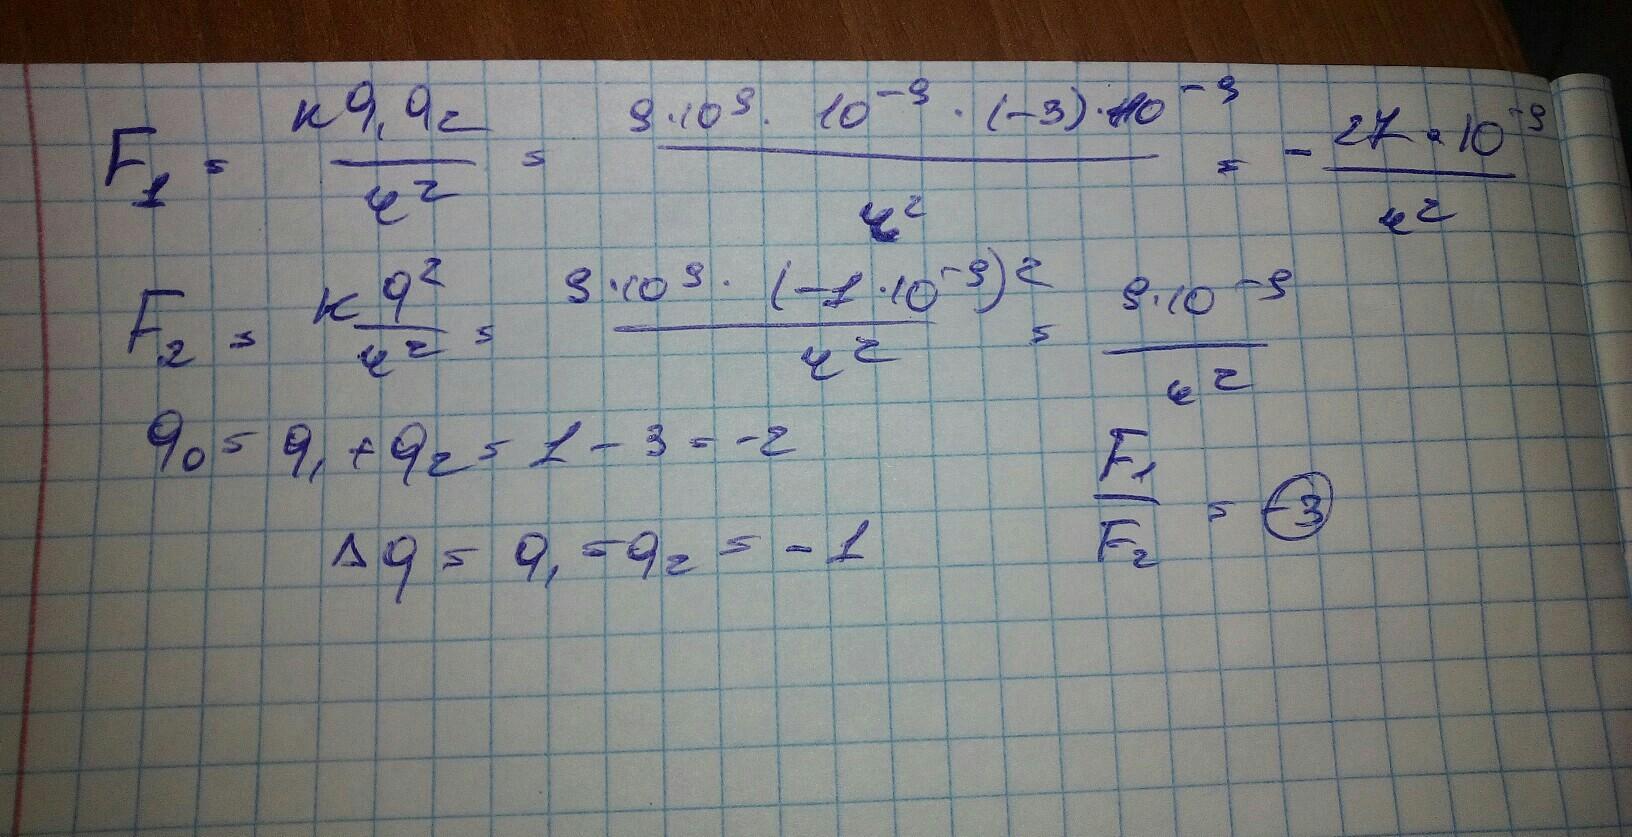 F₁ = кq₁q₂/r² = 9·10⁹·10⁻⁹·(-3)·10⁻⁹/r² = -27·10⁻⁹/r²
F₂ = к q²/r² = 9·10⁹·(-1·10⁻⁹)²/r² = 9·10⁻⁹/r²
q₀ = q₁ + q₂ = 1 - 3 = -2
F₁/F₂ = -3
Δq = q₁ = q₂ = -1